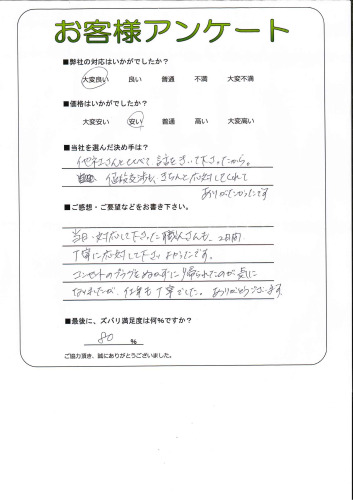 お客様アンケート
■弊社の対応はいかがでしたか?
大変良い 良い 普通 不満 大変不満
■価格はいかがでしたか?
大変安い 安い 普通 高い 大変高い
■当社を選んだ決め手は?
他社さんとくらべて 話をきいて下さったから。
値段交渉も、きちんと応対してくれて
ありがたかったです
■ご感想・ご要望などをお書き下さい。
当日対応して下さった職人さんも、2日間
丁寧に応対して下さいよかったです。
コンセントのプラグをぬかずに帰られたのが気に
なりましたが、仕事も丁寧でした。ありがとうございます
■最後に、ズバリ満足度は何%ですか?
80 %
ご協力頂き、誠にありがとうございました。